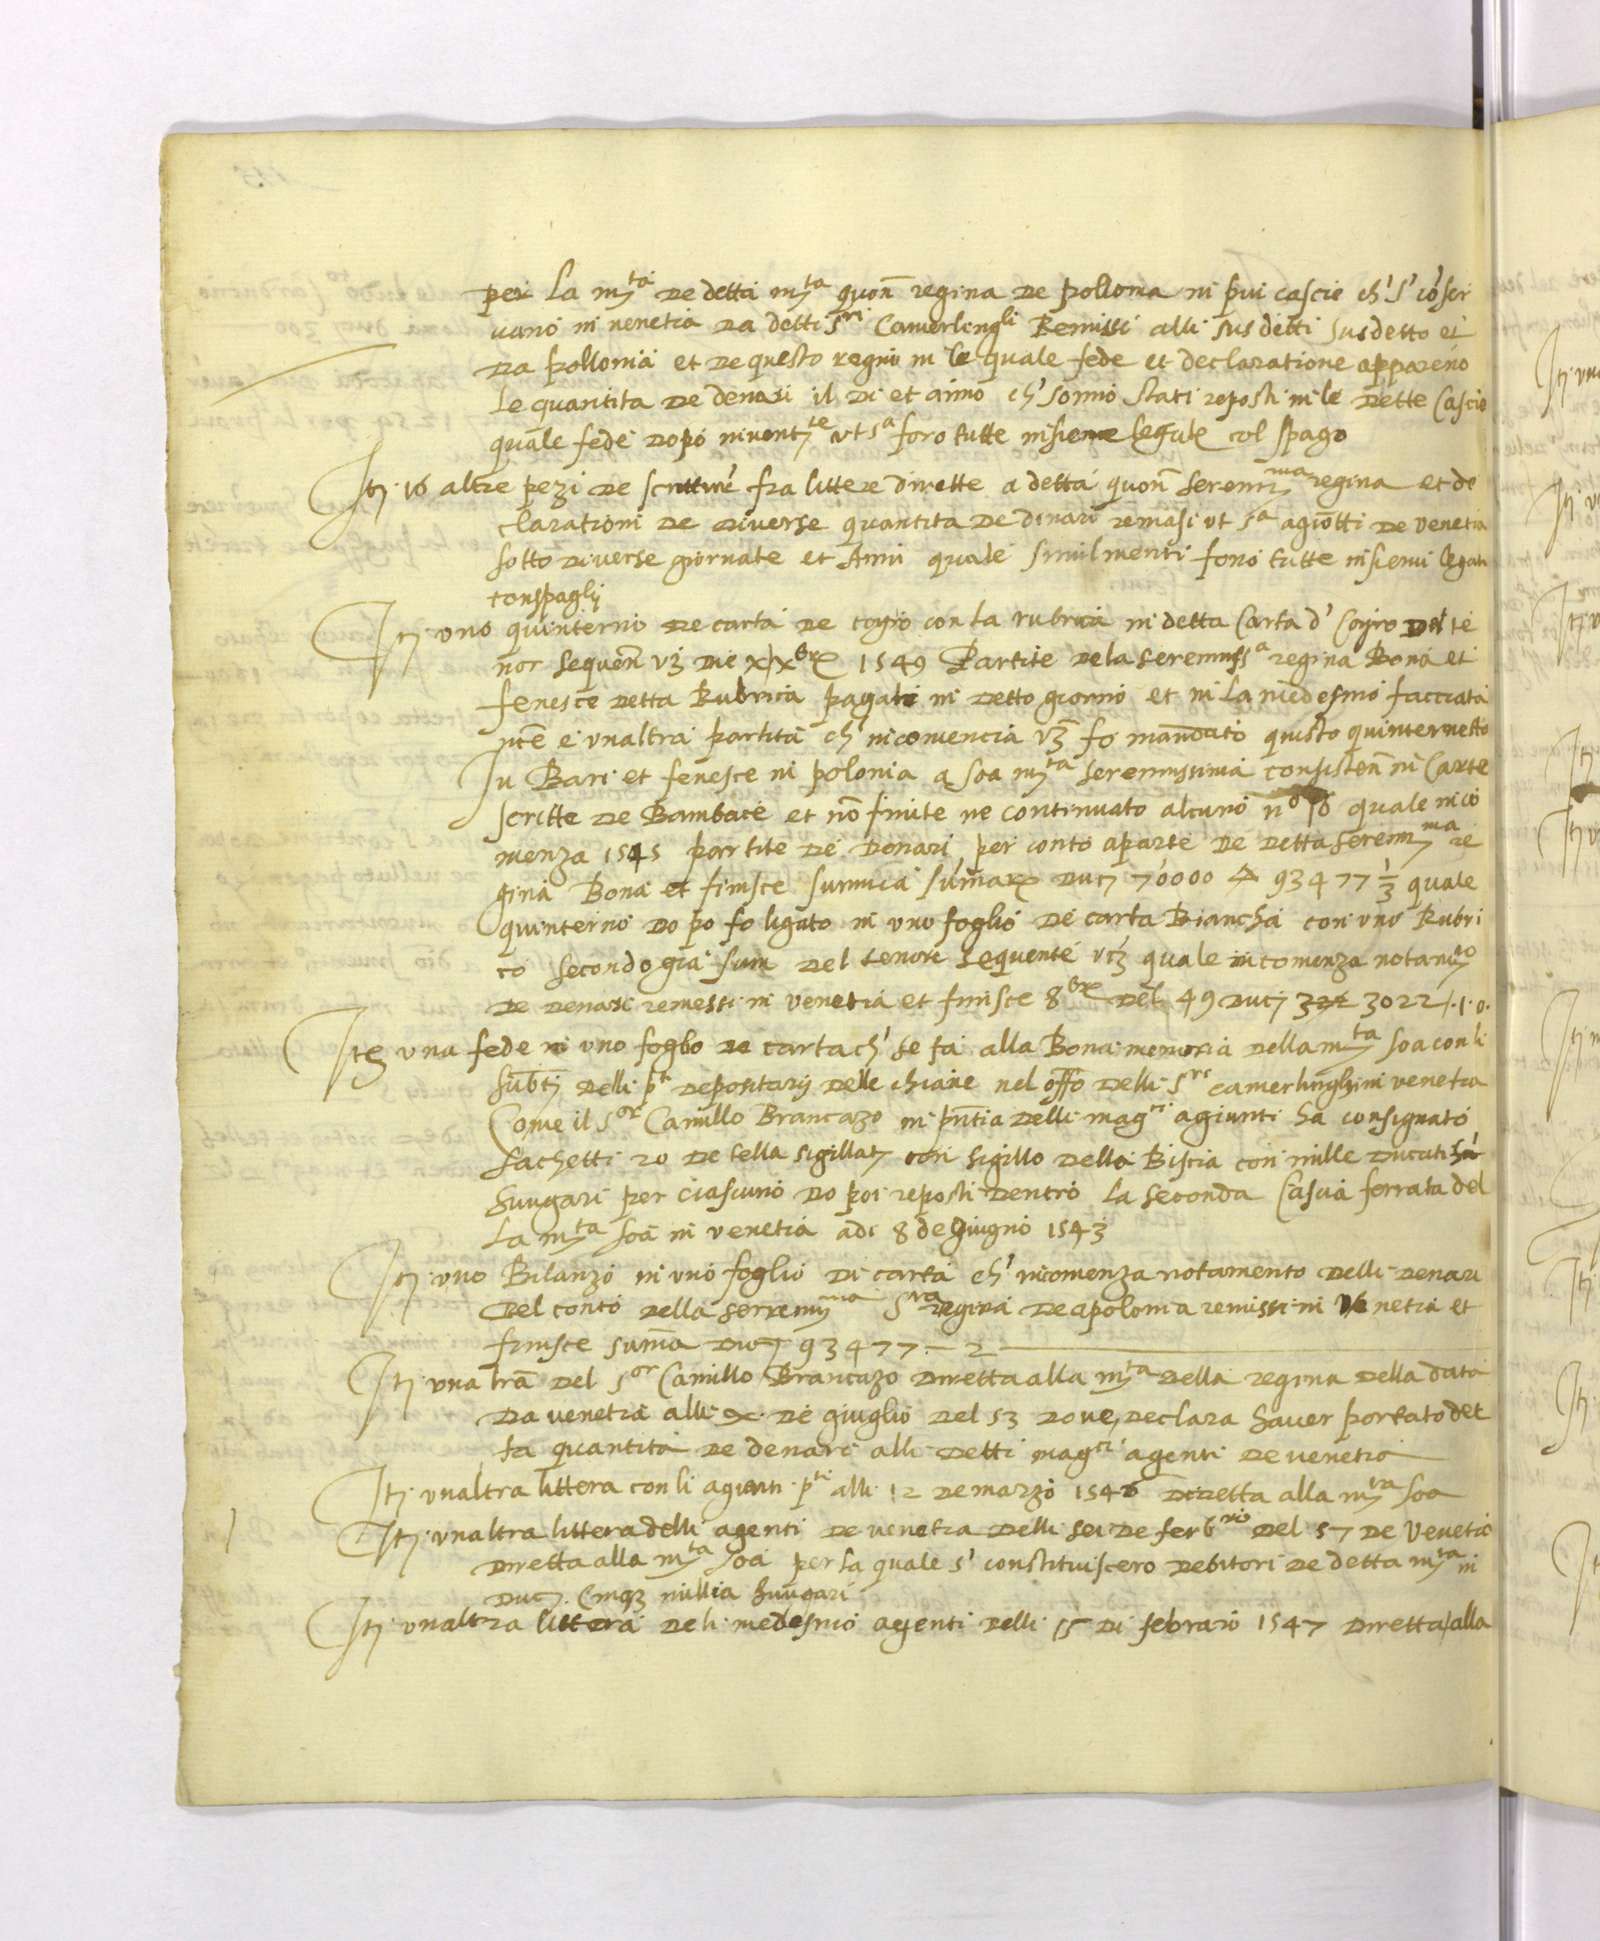 per la m.ta de detta m.ta quon regina de pollonia in piu cascie ch' s' coser
vano in venetia da detti s.ri Camerlengli Remissi alli sus detti susdetto et
da pollonia et de questo regno in le quale fede et declaratione appareno
le quantita de denari il di et anno ch' sonno stati reposti in le dette Cascie
quale fede dopo invent.te ut s.a foro tutte insieme legate col spago
It. 16 altre pezi de scritture fra littere dirette a detta quon Serenis.ma regina et de
clarationi de diverse quantita de denari remasi ut s.a agiotti de venetia
sotto diverse giornate et Anni quale similmenti foro tutte insiemi legati
con spaghi
It. uno quinterno de carta de coyro con la rubrica in detta Carta d' Coyro del te
nor sequen vz die 1549 Partite dela Sereniss.a regina Bona et
fenesce detta Rubrica pagati in detto giorno et in la medesmo facciata
e unaltra partita ch' incomencia vz fo mandato questo quinternetto
In Bari et fenesce in polonia a soa m.ta Serenissima consisten in Carte
scritte de Bambace et no finite ne continuato alcuno n.o 16 quale inco
menza 1545 partite de denari per conto aparte de detta Serenis.ma re
gina Bona et finisce summa sumar duc. 70000 93477 1/3 quale
quinterno dopo fo ligato in uno foglio de carta Biancha con uno Rubri
co secondo gia sum del tenore sequente vz quale incomenza notam.to
de denari remessi in venetia et finisce 8bre del 49 duc. 3022 . 1 . 0 .
Ite una fede in uno foglio de carta ch' se fa alla Bona memoria della m.ta soa con li
delli p.ti depositarij delle chiave nel offo delli s.ri camerlinghi in venetia
Come il s.or Camillo Brancazo in pntia delli mag.ci agiunti ha consignato
sachetti 20 de tella sigillat. con sigillo della Biscia con mille ducati
hungari per ciascuno do poi reposti dentro la seconda Cascia ferrata del
la m.ta soa in venetia adi 8 de giugno 1543
It. uno Bilanzo in uno foglio di carta ch' incomenza notamento delli denari
del conto della serrenis.ma s.ra regina de apolonia remissi in Venetia et
finisce suma duc. 93477 - 2
It. una lra del s.or Camillo Brancazo diretta alla m.ta della regina della data
da venetia alli x de giuglio del 53 dove declara haver portato det
ta quantita de denari alli detti mag.ci agenti de venetia
It. unaltra littera con li agenti p.ti alli 12 de marzo 1546 diretta alla m.ta soa
It. unaltra littera delli agenti de venetia delli sei de feb.rio del 57 de Venetia
diretta alla m.ta soa per la quale s' constituiscero debitori de detta m.ta in
duc. Cinq3 millia hungari
It. unaltra littera deli medesmo agenti delli 15 di febraro 1547 diretta alla